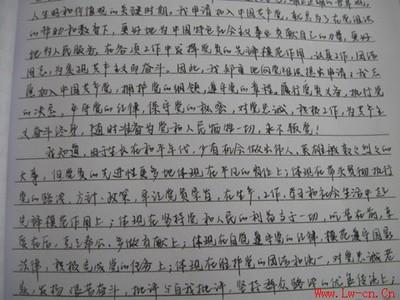 人生观和价值观的关键时期，我申请加入中国共产党，就是为了在党组织
的帮助和教育下，更好地为中国特色社会主义事业贡献自己的力量，更好
地为人民服务，在各项工作中发挥党员的先锋模范作用，认真工作，团结
同志，为实现共产主义而奋斗。因此，我郑重地向党组织提出申请：我志
愿加入中国共产党，拥护党的纲领，遵守党的章程，履行党员义务，执行党
的决定，严守党的纪律，保守党的秘密，对党忠诚，积极工作，为共产主
义奋斗终身，随时准备为党和人民牺牲一切，永不叛党！
我知道，由于生长在和平年代，少有机会做出伟人、英雄般轰轰烈烈的
大事，但党员的先进性更多地体现在平凡的岗位上；体现在带头贯彻执行
党的路线、方针、政策，牢记党员荣誉，在生产、工作、学习和社会生活中起
先锋模范作用上；体现在坚持党和人民的利益高于一切，吃苦在前，享
受在后，克己奉公，多做贡献上；体现在自觉遵守党的纪律，模范遵守国家
法律，积极完成党的任务上；体现在维护党的团结和统一，对党忠诚老
实，发扬 批评与自我批评，坚持群众路线的优良传统上；
www.Lw-cn.Cn